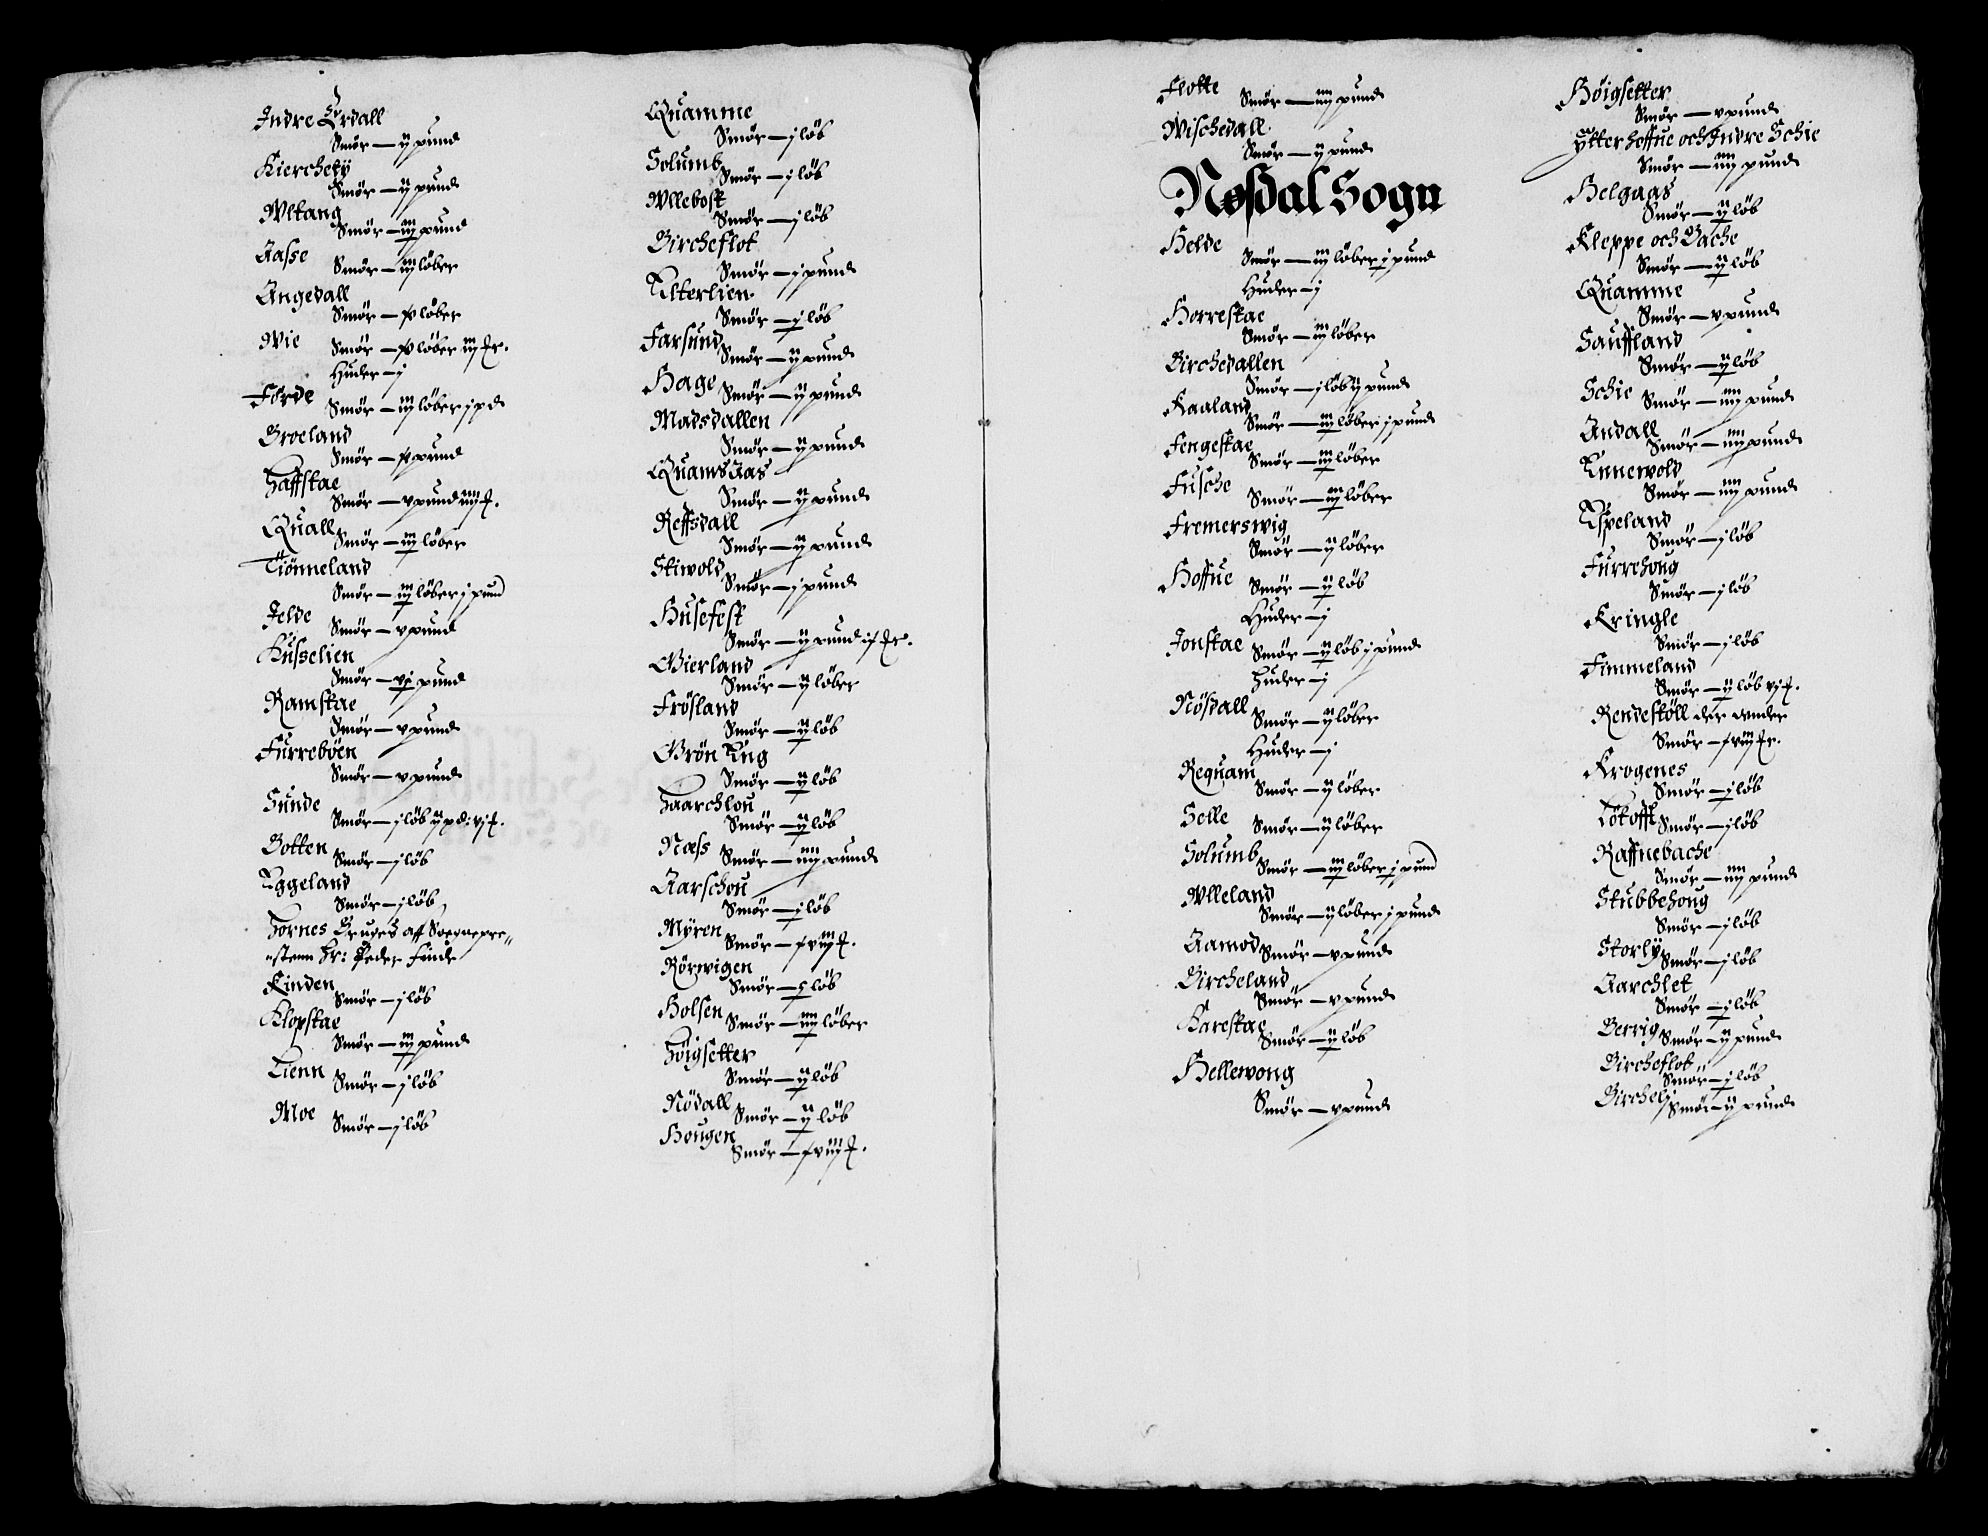 Indre Erdall
Smör — ij pund
Kierchety
Smör — ij pund
Wltang
Smör — iij pund
Aasse
Smör — iij löber
Angedall
Smör — löber
Wie
Smör — löber iij
Huder — j
Förde
Smör — iij löber j pd
Groeland
Smör — pund
Haffstae
Smör — v pund
Quall
Smör — iij löber
Tiönneland
Smör — iij löber j pund
Jelde
Smör — v pund
Kusselien
Smör — vj pund
Ramstae
Smör — v pund
Furreböen
Smör — v pund
Sunde
Smör — j löb ij pd: vj
Botten
Smör — j löb
Eggeland
Smör — j löb
Hornes Bruges aff Soegnepre„
„stenn Hr: Peder Finde
Kinden
Smör — j löb
Klopstae
Smör — iij pund
Lienn
Smör — j löb
Moe
Smör — j löb
Quamme
Smör — j löb
Solumb
Smör — j löb
Wllebost
Smör — j löb
Bircheflot
Smör — j pund
Elterlien
Smör — j löb
Farsund
Smör — ij pund
Hage
Smör — ij pund
Madsdallen
Smör — ij pund
Quams Aas
Smör — ij pund
Reffsdall
Smör — ij pund
Stiwold
Smör — j pund
Husefest
Smör — ij pund
Gierland
Smör — ij löber
Frösland
Smör — ij löb
Grön Eng
Smör — ij löb
Haarchlou
Smör — ij löb
Næss
Smör — iiij pund
Aarschou
Smör — j löb
Myren
Smör —
Rörwigen
Smör — löb
Holsen
Smör — iiij löber
Höigsetter
Smör — ij löb
Nödall
Smör — ij löb
Hougen
Smör —
Flotte
Smör — iiij pund
Wischedall
Smör — ij pund
Nøsdal Sogn
Helde
Smör — iij löber j pund
Huder — j
Horrestae
Smör — iij löber
Birchedallen
Smör — j löb ij pund
Kaaland
Smör — iij löber j pund
Fengestae
Smör — iij löber
Fusche
Smör — iij löber
Fremerswig
Smör — ij löber
Hoffue
Smör — ij löb
Huder — j
Jonstae
Smör — ij löb j pund
Huder — j
Nösdall
Smör — ij löber
Huder — j
Requam
Smör — ij löber
Selle
Smör — ij löber
Solumb
Smör — iij löber j pund
Wlleland
Smör — ij löber j pund
Aamod
Smör — v pund
Bircheland
Smör — v pund
Karestae
Smör — ij löb
Hellewong
Smör — v pund
Höigsetter
Smör — v pund
Ytterhoffue och Indre Schie
Smör — iiij pund
Helgaas
Smör — ij löb
Kleppe och Bache
Smör — ij löb
Quamme
Smör — v pund
Sauffland
Smör — ij löb
Schie
Smör — iiij pund
Andall
Smör — iiij pund
Ennewold
Smör — iiij pund
Espeland
Smör — j löb
Furrehoug
Smör — j löb
Kringle
Smör — j löb
Fimmeland
Smör — ij löb vj
Rendestöll der vnder
Smör —
Krogenes
Smör — j löb
Lökofft
Smör — j löb
Raffnebache
Smör — iiij pund
Stubbehoug
Smör — j löb
Storly
Smör — j löb
Aarchlet
Smör — j löb
Berrig
Smör — ij pund
Bircheflot
Smör — j löb
Birchelj
Smör — ij pund